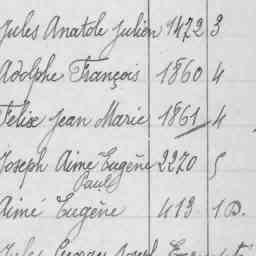 Jules Anatole Julien 1472 3
Adolphe François 1860 4
Felix Jean Marie 1861 4
Joseph Aimé Eugène 2270 5
Paul
Aimé Eugène 413 1 D.
Jules Georges Joseph